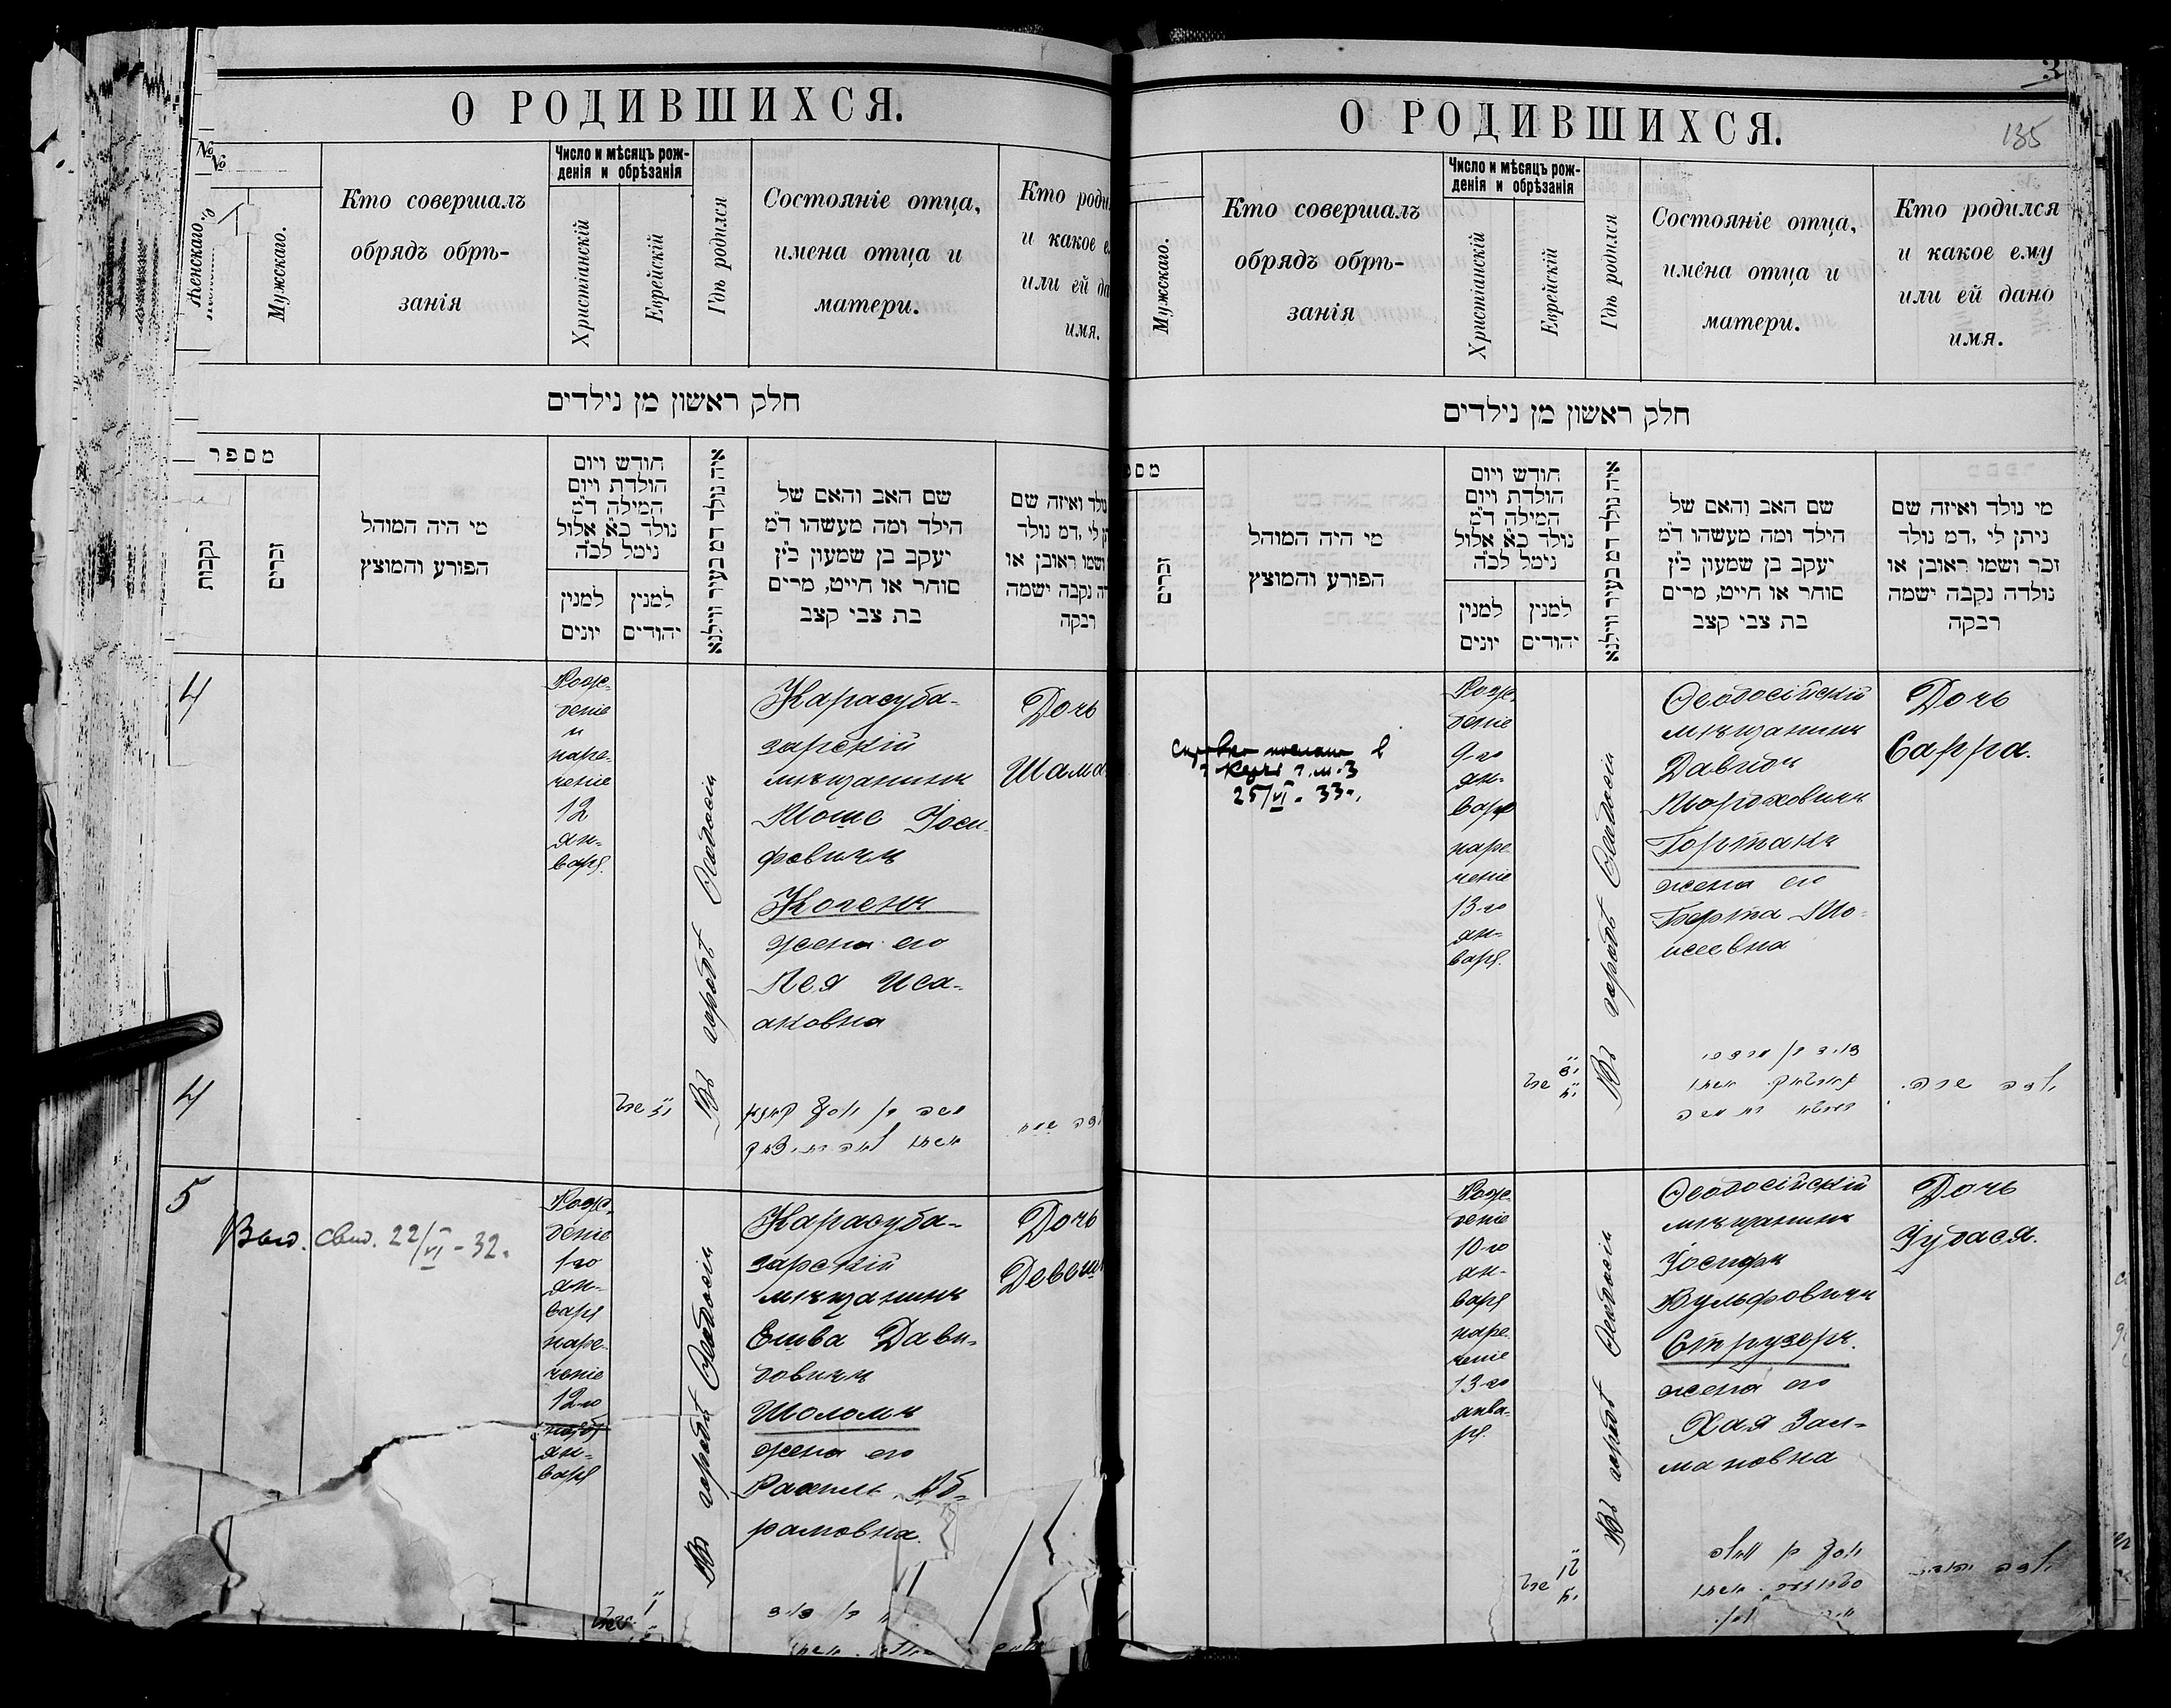 О РОДИВШИХСЯ.
№
№
Женскаго.
Мужскаго.
Кто совершалъ
обрядъ обрѣ-
занія
Число и мѣсяцъ рож-
денія и обрѣзанія
Христіанскій
Еврейскій
Гдѣ родился
Состояніе отца,
имена отца и
матери.
Кто роди
и какое е
или ей да
имя.
חלק ראשון מן נילדים
מספר
נקבות
זכרים
מי היה המוהל
הפורע והמוצץ
חודש ויום
הולדת ויום
המילה ד״מ
נולד כ״א אלול
נימל לכ״ה
למנין
יונים
למנין
יהודים
איה נולד דמ בעיר ווילנא
שם האב והאם של
הילד ומה מעשהו ד״מ
יעקב בן שמעון כ״ץ
סוחר או חייט, מרים
בת צבי קצב
ולד ואיזה שם
תן לי ,דמ נולד
ושמו ראובן או
דה נקבה ישמה
רבקה
4
Рож-
деніе
и
наре-
ченіе
12
ян-
варя.
Въ городѣ Ѳеодосіи
Карасуба-
зарскій
мѣщанинъ
Моше Іоси-
фовичъ
Когенъ
жена его
Лея Иса-
аковна
Дочь
Шама
4
5
Выд. свид. 22/VI - 32.
Рож-
деніе
1-го
ян-
варя
наре-
ченіе
12-го
ян-
варя
Въ городѣ Ѳеодосіи
Карасуба-
зарскій
мѣщанинъ
Елива Дави-
довичъ
Шоломъ
жена его
Рахиль Аб-
рамовна.
Дочь
Девош
3
135
О РОДИВШИХСЯ.
Мужскаго.
Кто совершалъ
обрядъ обрѣ-
занія
Число и мѣсяцъ рож-
денія и обрѣзанія
Христіанскій
Еврейскій
Гдѣ родился
Состояніе отца,
имена отца и
матери.
Кто родился
и какое ему
или ей дано
имя.
חלק ראשון מן נילדים
מס
זכרים
מי היה המוהל
הפורע והמוצץ
חודש ויום
הולדת ויום
המילה ד״מ
נולד כ״א אלול
נימל לכ״ה
למנין
יונים
למנין
יהודים
איה נולד דמ בעיר ווילנא
שם האב והאם של
הילד ומה מעשהו ד״מ
יעקב בן שמעון כ״ץ
סוחר או חייט, מרים
בת צבי קצב
מי נולד ואיזה שם
ניתן לי ,דמ נולד
זכר ושמו ראובן או
נולדה נקבה ישמה
רבקה
25/VI - 33 г.
Рож-
деніе
9-го
ян-
варя
наре-
ченіе
13-го
ян-
варя.
Въ городѣ Ѳеодосіи
Ѳеодосійскій
мѣщанинъ
Давидъ
Мордховичъ
Гортанъ
жена его
Берта Мо-
исеевна
Дочь
Сарра.
Рож-
деніе
10-го
ян-
варя
наре-
ченіе
13-го
янва-
ря.
Въ городѣ Ѳеодосіи
Ѳеодосійскій
мѣщанинъ
Іосифъ
Вульфовичъ
Струзеръ.
жена его
Хая Зал-
мановна
Дочь
Іудася.